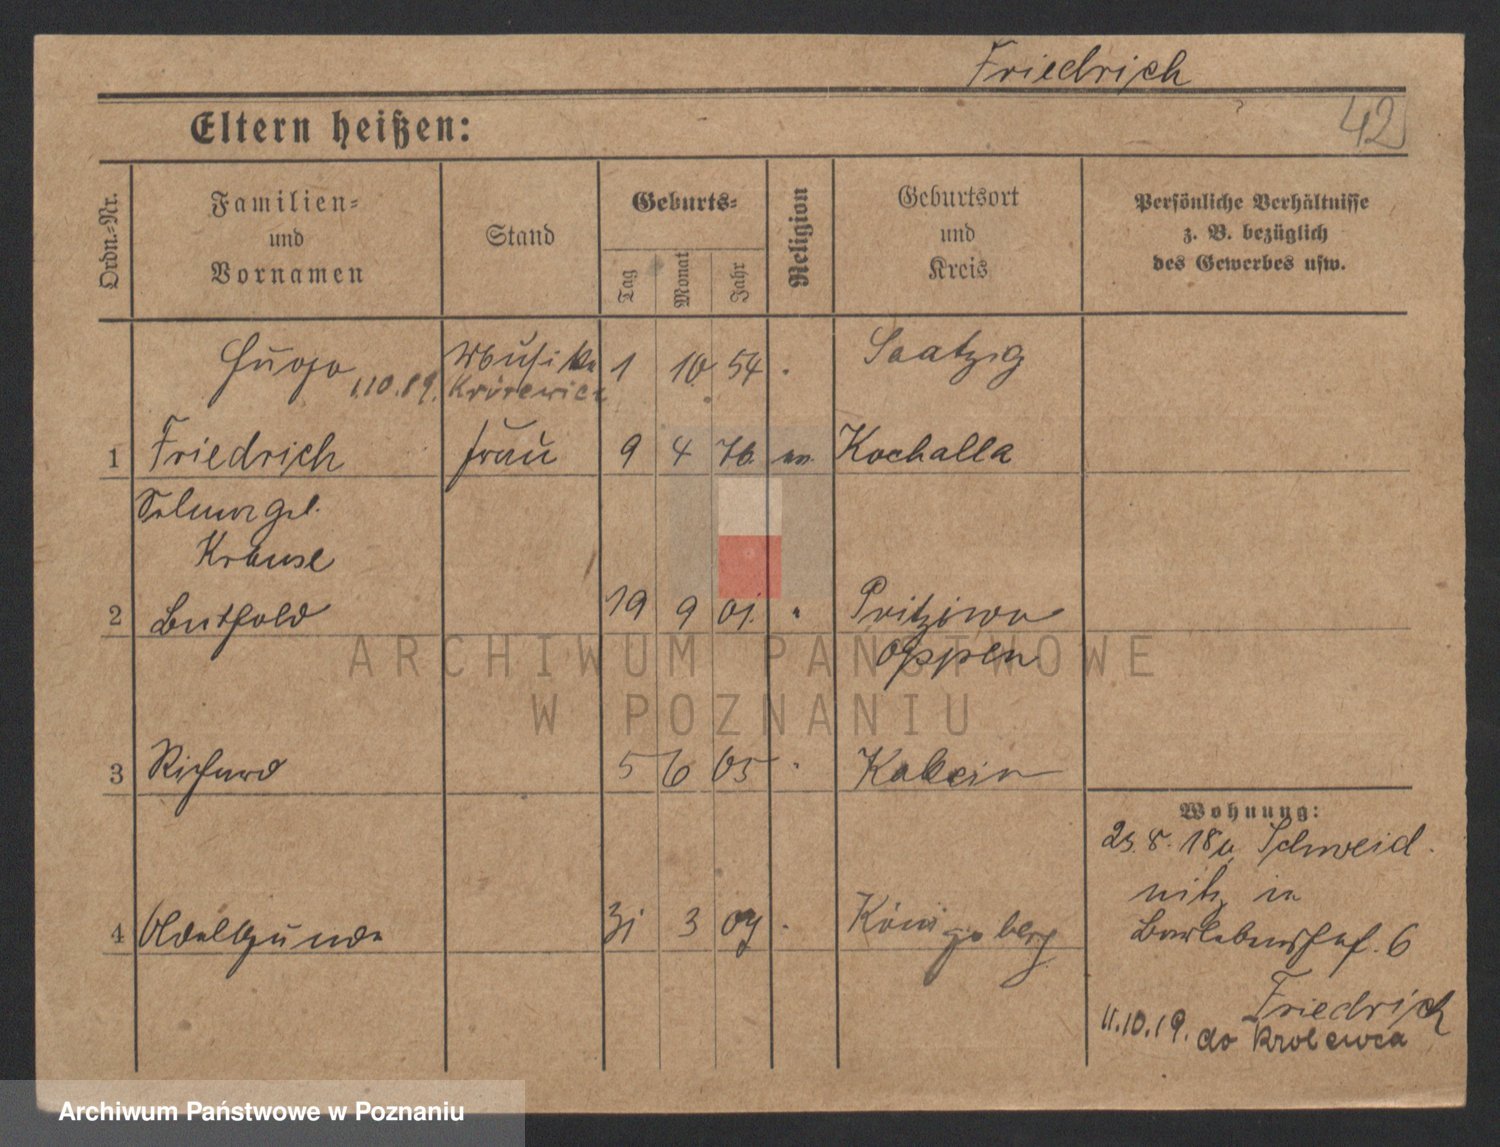 Friedrich
42
Eltern heißen:
Ordn.-Nr.
Familien-
und
Vornamen
Stand
Geburts-
Tag
Monat
Jahr
Religion
Geburtsort
und
Kreis
Persönliche Verhältnisse
z. B. bezüglich
des Gewerbes usw.
Hugo
1 10 54
Saatzig
1 Friedrich Frau 9 4 76 ev. Kochalla
Selma geb.
Krause
2 Berthold 19 9 01
Oppen
3 Richard 5 6 05
Wohnung:
4 Adelgunde 31 3 09 Königsberg
Schweid
nitz in
6
Friedrich
11.10.19. do
ARCHIWUM PAŃSTWOWE
W POZNANIU
Archiwum Państwowe w Poznaniu